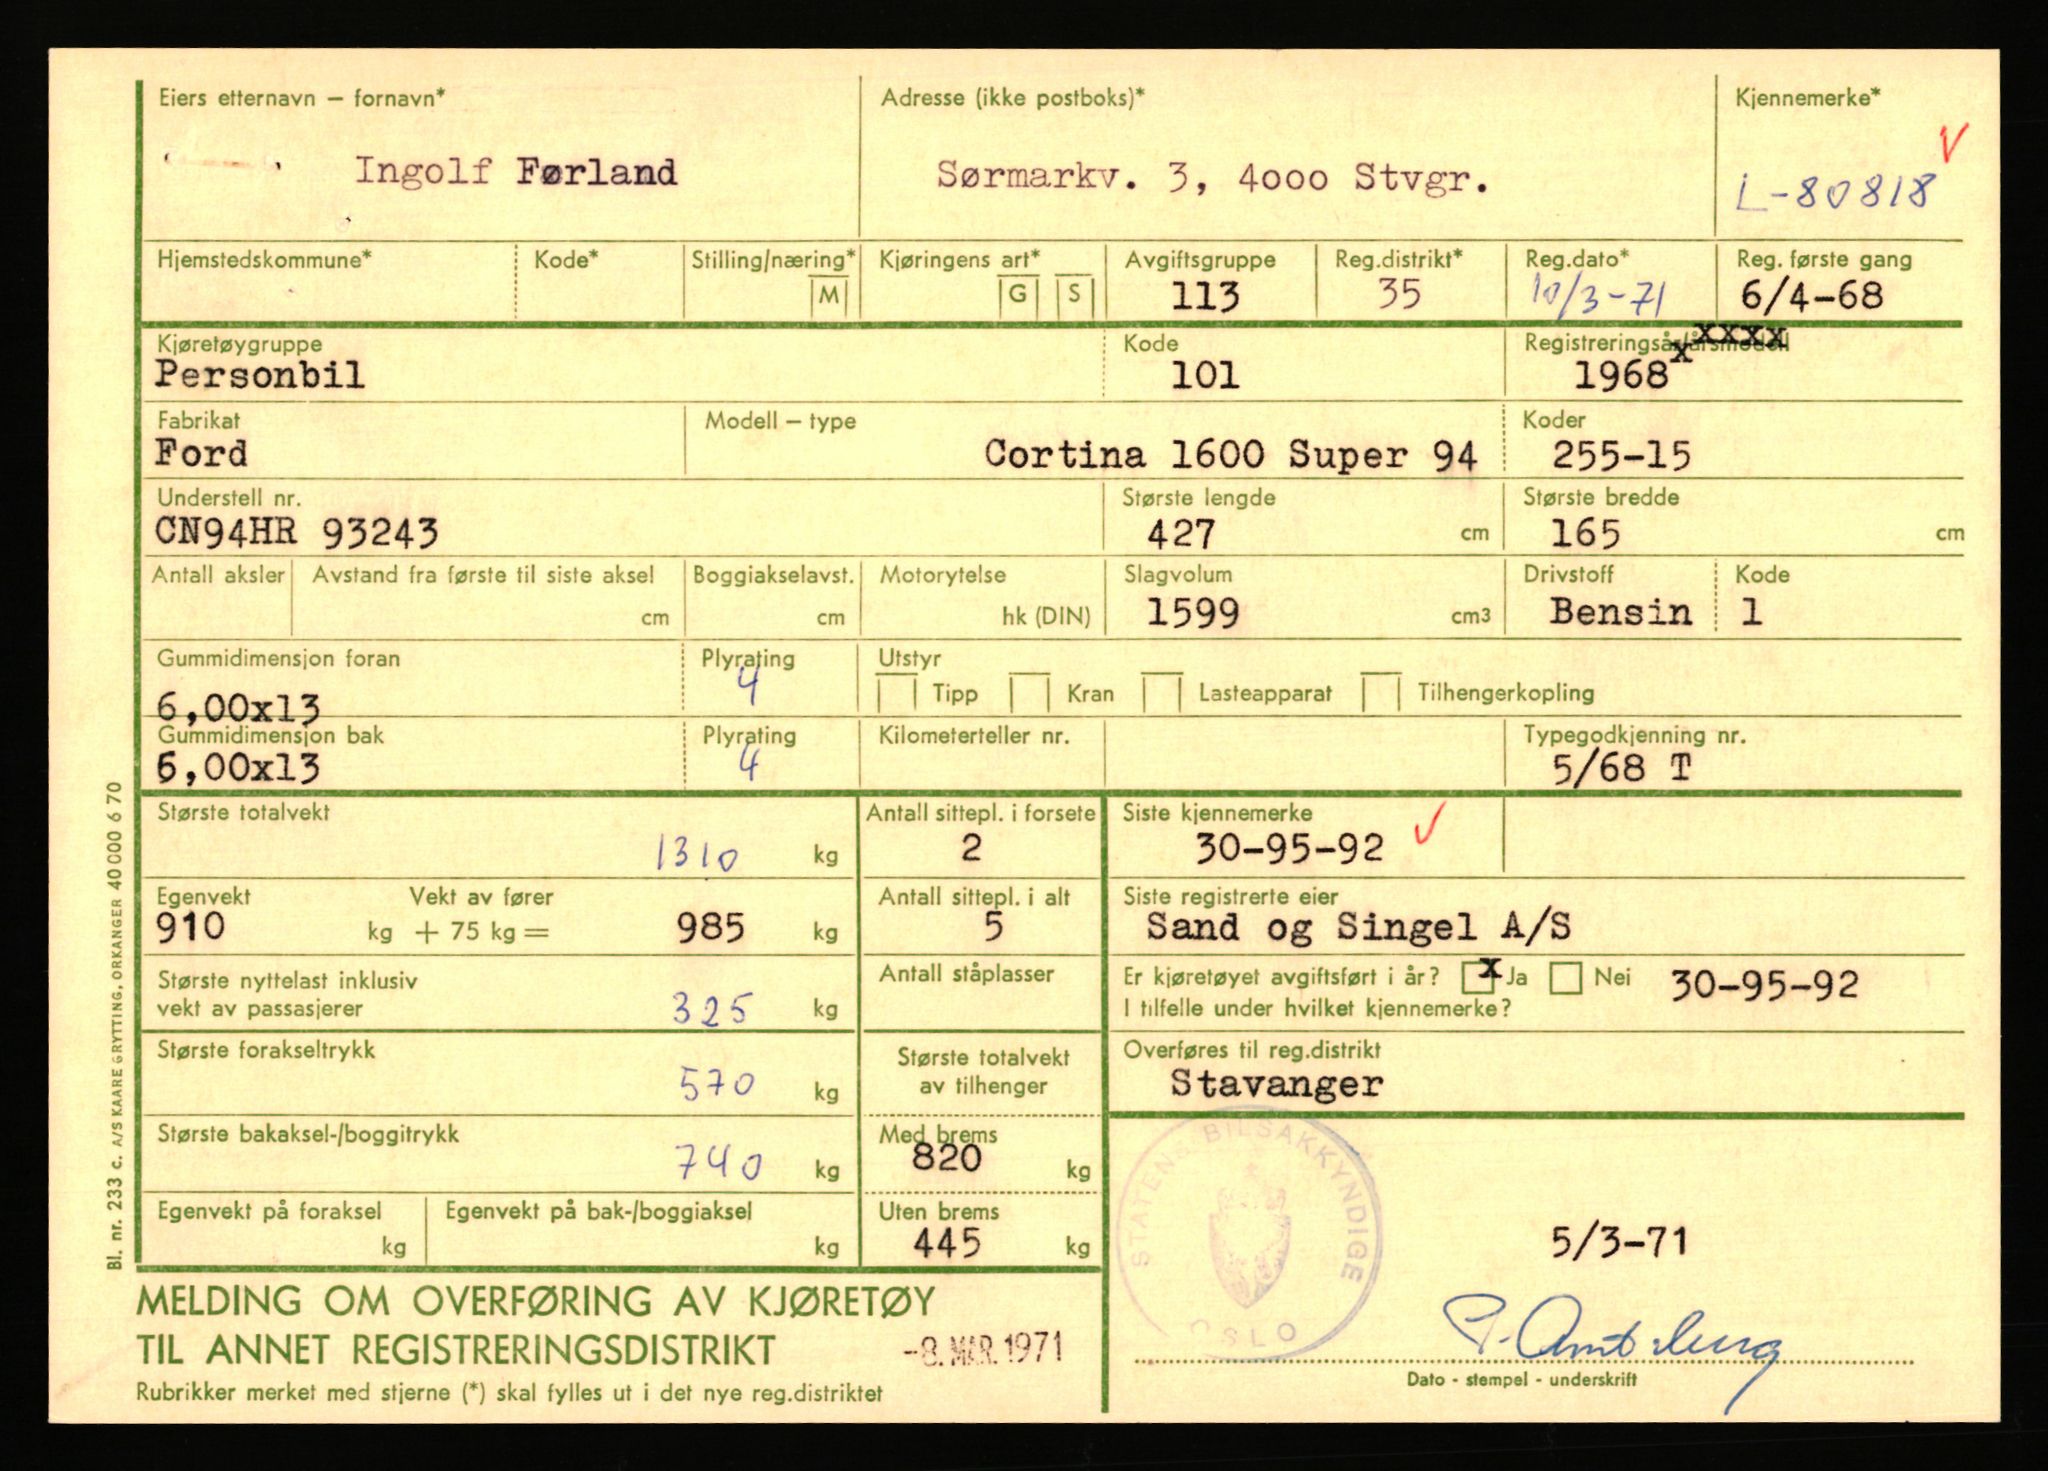 Eiers etternavn – fornavn* Adresse (ikke postboks)* Kjennemerke*
Ingolf Førland Sørmarkv. 3, 4000 Stvgr. L-80818
Hjemstedskommune* Kode* Stilling/næring* Kjøringens art* Avgiftsgruppe Reg.distrikt* Reg.dato* Reg. første gang
M G S 113 35 10/3-71 6/4-68
Kjøretøygruppe Kode Registreringsår/årsmodell xxxx
Personbil 101 1968 x
Fabrikat Modell – type Koder
Ford Cortina 1600 Super 94 255-15
Understell nr. Største lengde Største bredde
CN94HR 93243 427 cm 165 cm
Antall aksler Avstand fra første til siste aksel Boggiakselavst. Motorytelse Slagvolum Drivstoff Kode
cm cm hk (DIN) 1599 cm3 Bensin 1
Gummidimensjon foran Plyrating Utstyr
6,00x13 4 Tipp Kran Lasteapparat Tilhengerkopling
Gummidimensjon bak Plyrating Kilometerteller nr. Typegodkjenning nr.
6,00x13 4 5/68 T
Største totalvekt Antall sittepl. i forsete Siste kjennemerke
1310 kg 2 30-95-92
Egenvekt Vekt av fører Antall sittepl. i alt Siste registrerte eier
910 kg + 75 kg = 985 kg 5 Sand og Singel A/S
Største nyttelast inklusiv Antall ståplasser Er kjøretøyet avgiftsført i år? x Ja Nei 30-95-92
vekt av passasjerer 325 kg I tilfelle under hvilket kjennemerke?
Største forakseltrykk Største totalvekt Overføres til reg.distrikt
570 kg av tilhenger Stavanger
Største bakaksel-/boggitrykk Med brems
740 kg 820 kg
STATENS BILSAKKYNDIGE
OSLO
Egenvekt på foraksel Egenvekt på bak-/boggiaksel Uten brems
kg kg 445 kg 5/3-71
MELDING OM OVERFØRING AV KJØRETØY
TIL ANNET REGISTRERINGSDISTRIKT -8. MAR. 1971
Rubrikker merket med stjerne (*) skal fylles ut i det nye reg.distriktet
Dato - stempel - underskrift
Bl. nr. 233 c. A/S KAARE GRYTTING, ORKANGER 40000 6 70